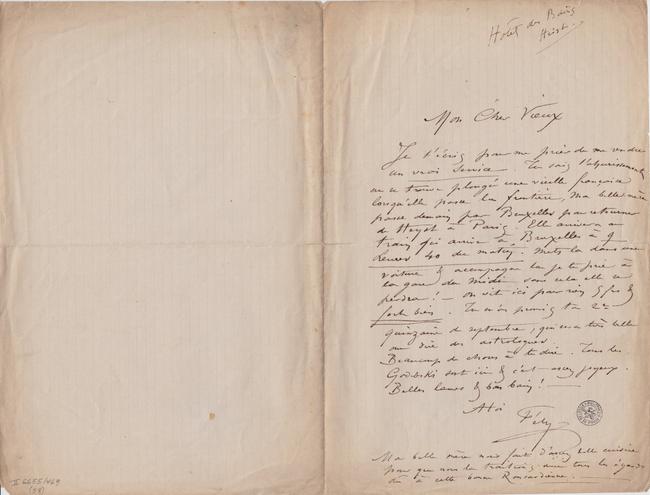 Hôtel des Bains
Heist.
Mon Cher Vieux
Je t'écris pour me prier de me rendre
un vrai service. Tu sais l'ahurissement
où se trouve plongé une vieille française
lorsqu'elle passe la frontière, Ma belle mère
passe demain par Bruxelles pour retourner
de Heyst à Paris. Elle arrivera au
train qui arrive à Bruxelles à 9
heures 40 du matin. Mets la dans une
voiture & accompagne la je te prie à
la gare du Midi sans cela elle se
perdra! — on vit ici pour rien &
fort bien. Tu m'as promis ta 2me
quinzaine de septembre, qui sera très belle
au dire des astrologues
Beaucoup de choses à te dire. Tous les
Godebski sont ici & c'est assez joyeux.
Belles lames & bon bain! —
A toi
Fély
Ma belle mère nous fait d'assez belle cuisine
pour que nous la traitions avec tous les égards
dûs à cette bonne Ronsardienne.
II 6655/469
(58)